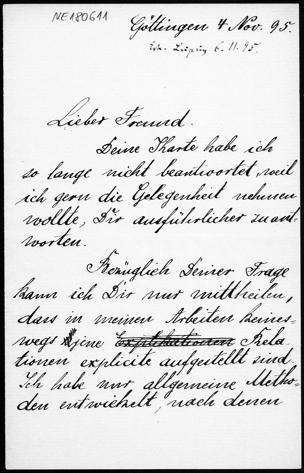 NE180611
Göttingen 4 Nov. 95.
6.11.95.
Lieber Freund.
Deine Karte habe ich
so lange nicht beantwortet, weil
ich gern die Gelegenheit nehmen
wollte, Dir ausführlicher zu ant-
worten.
Bezüglich Deiner Frage
kann ich Dir nur mittheilen,
dass in meinen Arbeiten keines-
wegs jene Rela
tionen explicite aufgestellt sind.
Ich habe nur allgemeine Metho-
den entwickelt, nach denen